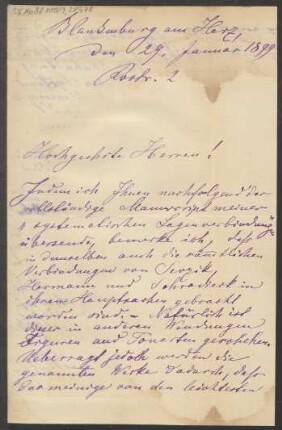 Blankenburg am Harz,
den 29. Januar 1899
2
Hochgeehrte Herren!
Indem ich Ihnen nachfolgend das
vollständige Manuscript meiner
systematischen Lagenverbindung
übersende, bemerke ich, daß
in demselben auch die sämtlichen
Verbindungen von Sevcik,
Hermann und Schradieck in
ihren Hauptsachen gebracht
worden sind. – Natürlich ist
dieses in anderen Windungen
Figuren und Tonarten geschehen.
Ueberragt jedoch werden die
genannten Werke dadurch, daß
das meinige von den leichtesten